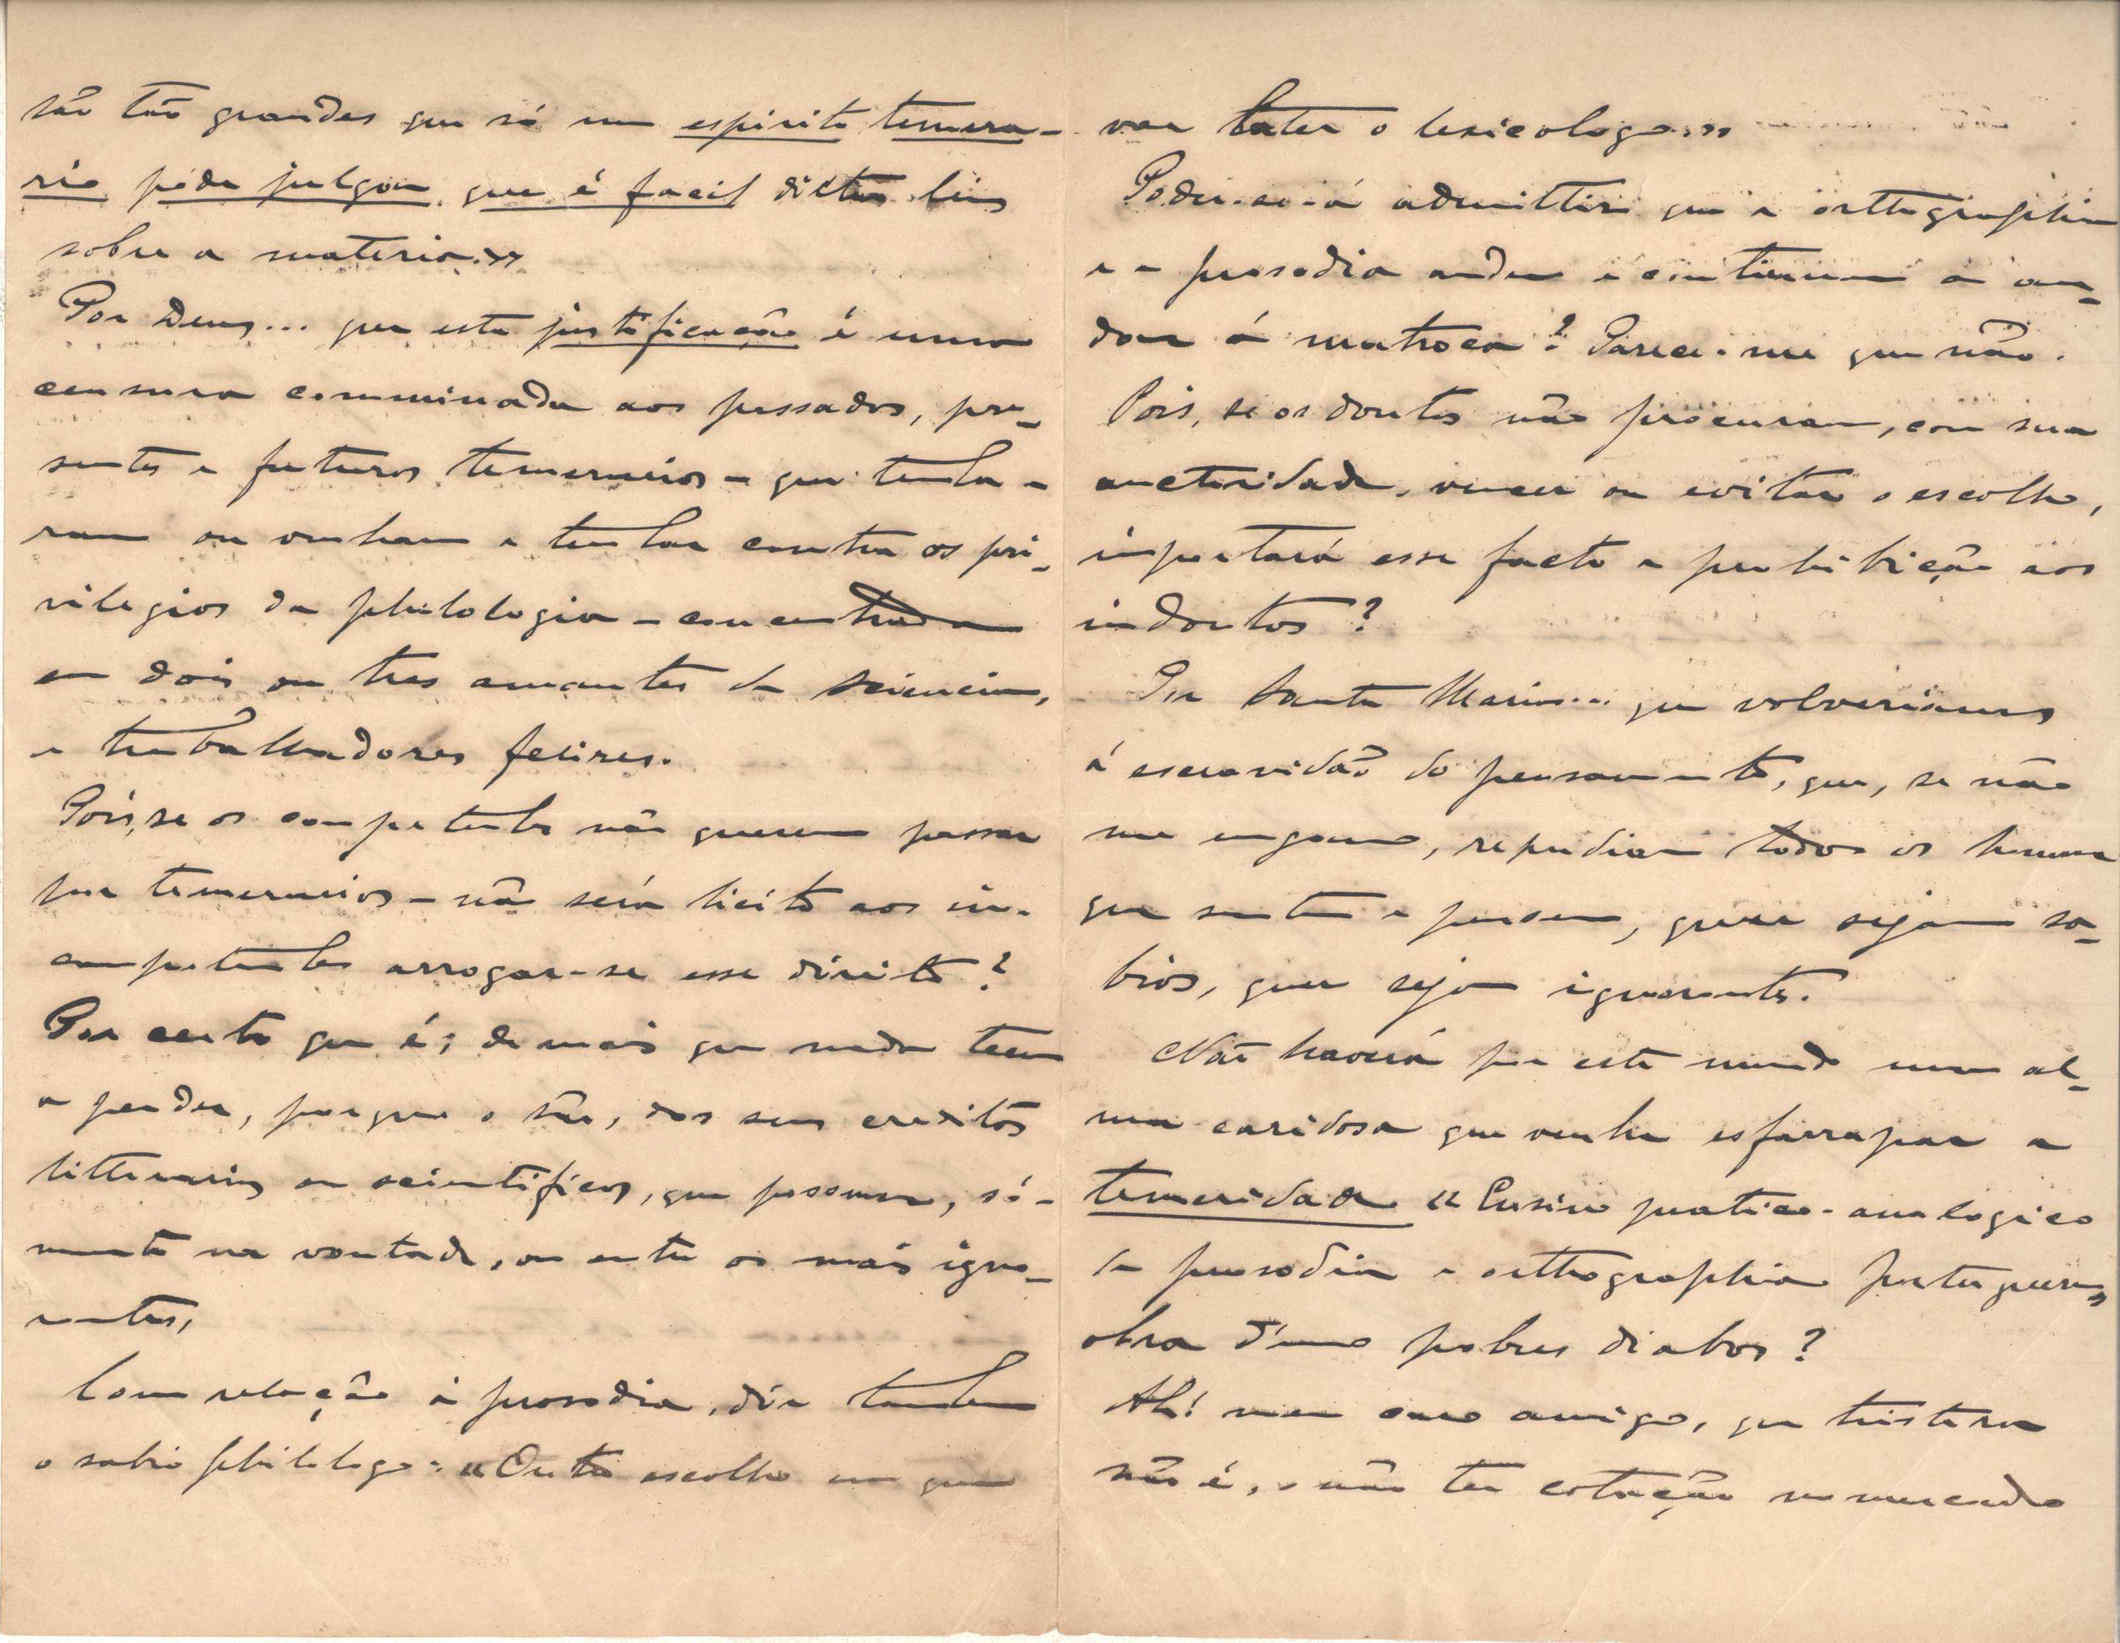 são tão grandes que só um espirito temera-
rio póde julgar que é facil dictar leis
sobre a materia.»
Por Deus... que esta justificação é uma
censura comminada aos passados, pre-
sentes e futuros temerarios – que tenta-
ram ou venham a tentar contra os pri-
vilegios da philologia – concentrada
em dois ou tres amantes da sciencia,
e trabalhadores felizes.
Pois, se os competentes não querem passar
por temerarios – não será licito aos in-
competentes arrogar-se esse direito?
Por certo que é; demais que nada teem
a perder, porque o são, dos seus creditos
litterarios ou scientificos, que possuem, só-
mente na vontade, ou entre os mais igno-
rantes,
Com relação á prosodia, diz tambem
o sabio philologo: «Outro escolho em que
vae bater o lexicologo.»
Poder-se-á admittir que a orthographia
e a prosodia andem e continuem a an-
dar á matroca? Parece-me que não.
Pois, se os doutos não procuram, com sua
auctoridade, vencer ou evitar o escolho,
importará esse facto a prohibição aos
indoutos?
Por Santa Maria... que volveriamos
á escravidão do pensamento, que, se não
me engano, repudiam todos os homens
que sentem e pensam, quer sejam sa-
bios, quer sejam ignorantes.
Não haverá por este mundo uma al-
ma caridosa que venha esfarrapar a
temeridade «Ensino pratico-analogico
da prosodia e orthographia portugueza»
obra d'uns pobres diabos?
Ah! meu caro amigo, que tristeza
não é, o não ter cotação no mercado